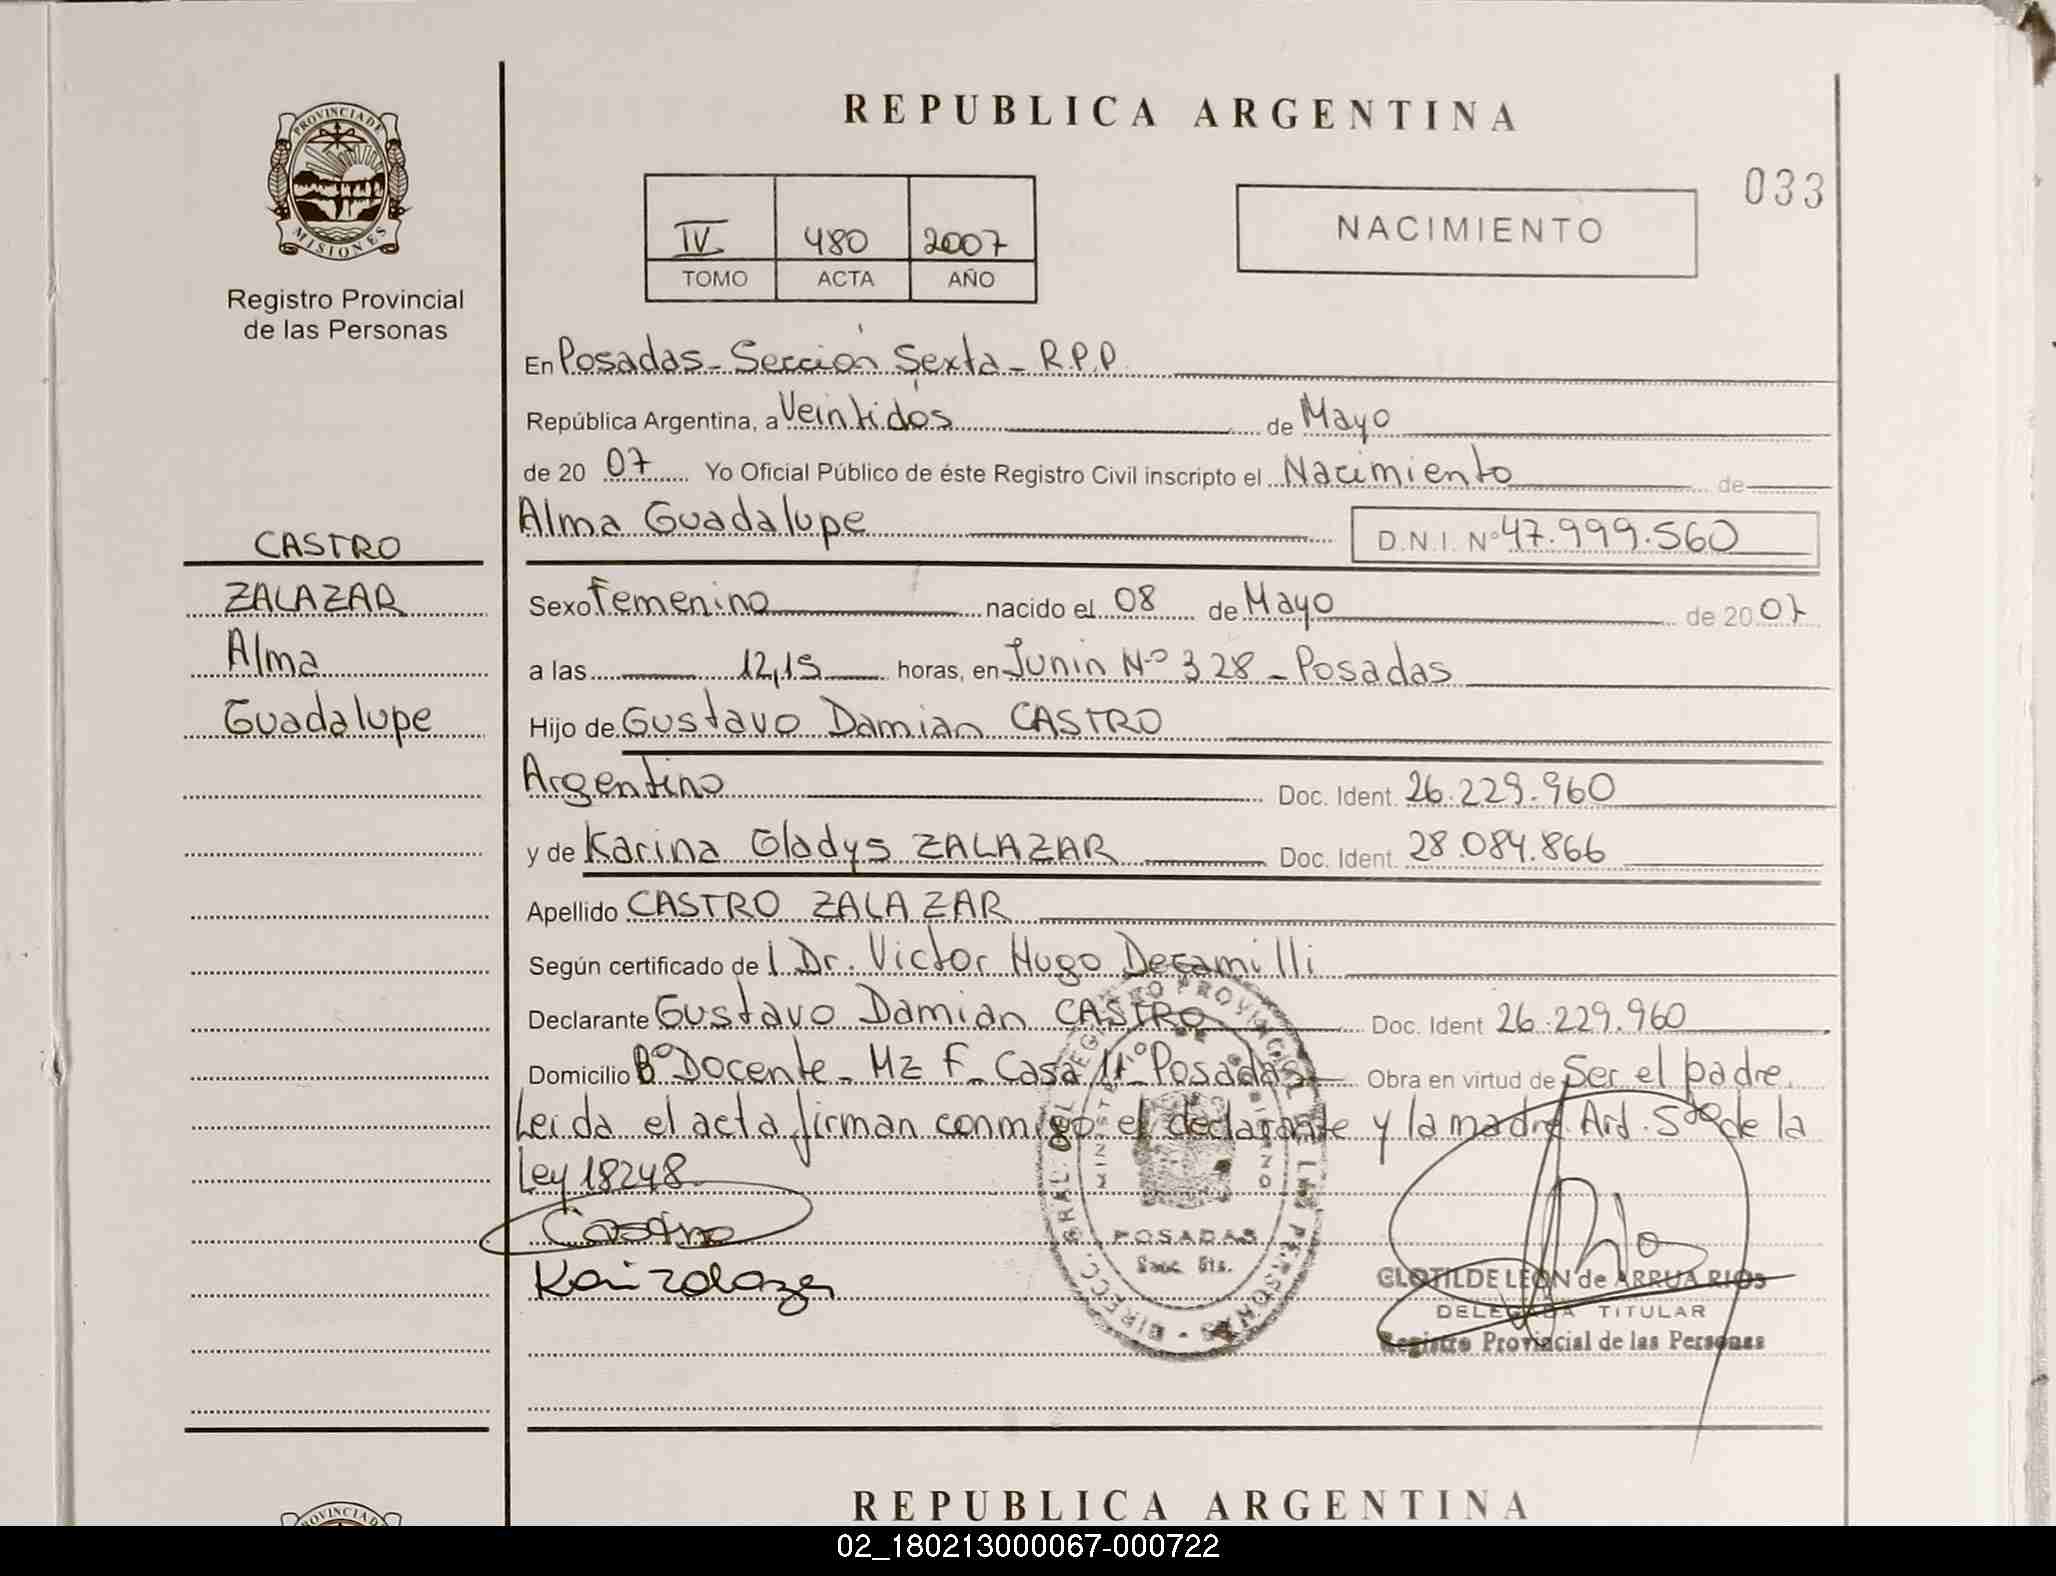 REPUBLICA ARGENTINA
PROVINCIA DE MISIONES
Registro Provincial
de las Personas
033
NACIMIENTO
IV 480 2007
TOMO ACTA AÑO
En Posadas - Sección Sexta - R.P.P.
República Argentina, a Veintidós de Mayo
de 20 07 Yo Oficial Público de éste Registro Civil inscripto el Nacimiento de
Alma Guadalupe D.N.I. Nº 47.999.560
CASTRO
ZALAZAR
Alma
Guadalupe
Sexo Femenino nacido el 08 de Mayo de 20 07
a las 12,15 horas, en Junin Nº 328 - Posadas
Hijo de Gustavo Damian CASTRO
Argentino Doc. Ident. 26.229.960
y de Karina Gladys ZALAZAR Doc. Ident. 28.084.866
Apellido CASTRO ZALAZAR
Según certificado de l Dr. Victor Hugo Decamilli
Declarante Gustavo Damian CASTRO Doc. Ident 26.229.960
Domicilio Bº Docente - Mz F - Casa 11º Posadas Obra en virtud de Ser el padre.
Leida el acta firman conmigo el declarante y la madre. Art. 5to de la
Ley 18248.
Castro
Kari Zalazar
DIRECC. GRAL. DEL REGISTRO PROVINCIAL DE LAS PERSONAS
MINISTERIO DE GOBIERNO
POSADAS
CLOTILDE LEON de ARRUA RIOS
DELEGADA TITULAR
Registro Provincial de las Personas
REPUBLICA ARGENTINA
PROVINCIA DE
02_180213000067-000722